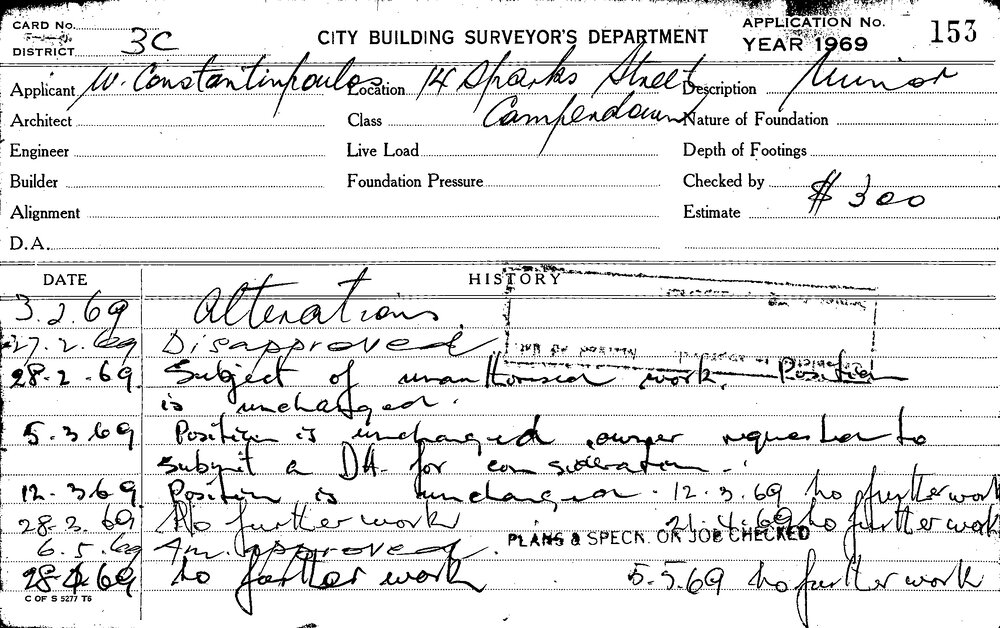 CARD No.
DISTRICT 3C
CITY BUILDING SURVEYOR'S DEPARTMENT
APPLICATION No. 153
YEAR 1969
Applicant W. Constantinpoulos Location 14 Sparks Street Description Minor
Architect Class Campendown Nature of Foundation
Engineer Live Load Depth of Footings
Builder Foundation Pressure Checked by
Alignment Estimate $300
D.A.
DATE HISTORY
3.2.69 Alterations.
27.2.69 Disapproved
28-2-69 Subject of unauthorised work. Position
is unchanged.
5.3.69 Position is unchanged owner requested to
submit a DA for consideration.
12.3.69 Position is unchanged. 12.3.69 No further work
28.3.69 No further work 21.4.69 No further work
PLANS & SPECN. ON JOB CHECKED
6.5.69 Am. approved.
28.4.69 No further work 5.5.69 No further work
C OF S 5277 T6